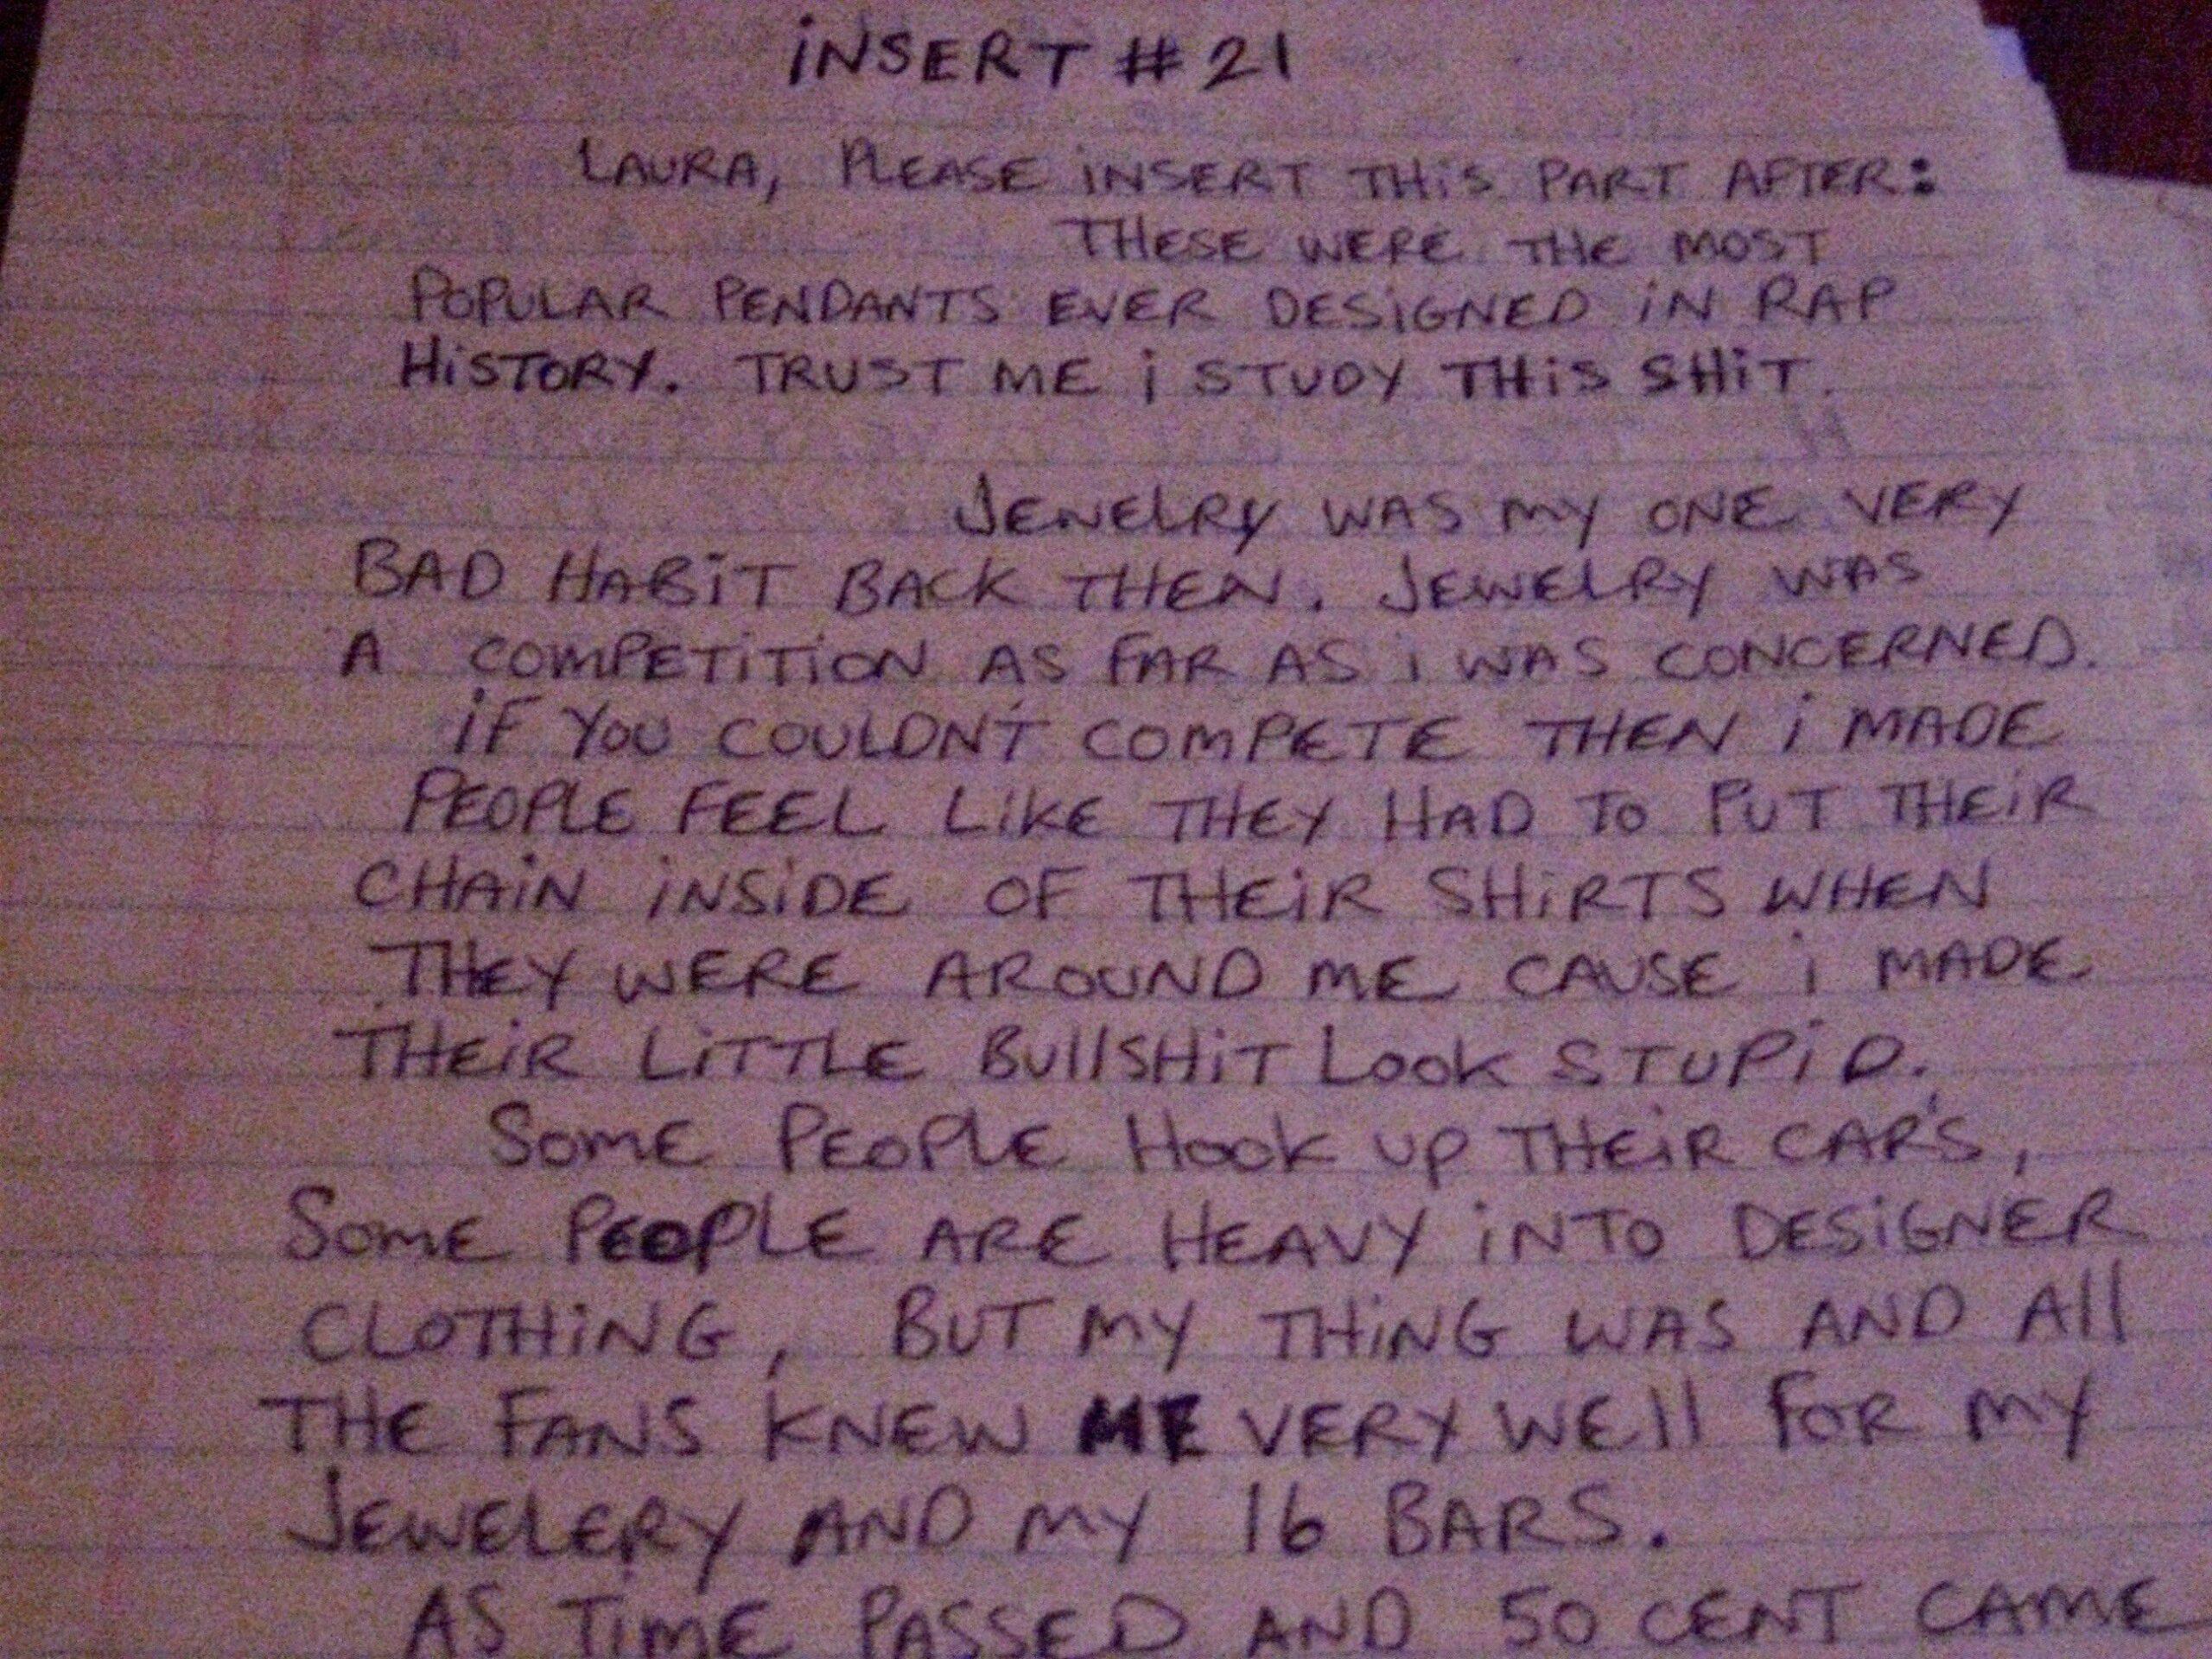 iNSERT #21
LAURA, PLEASE iNSERT THiS PART AFTER:
THESE WERE THE MOST
POPULAR PENDANTS EVER DESiGNED iN RAP
HiSTORY. TRUST ME i STUDY THiS SHiT.
JEWELRY WAS MY ONE VERY
BAD HABiT BACK THEN. JEWELRY WAS
A COMPETiTiON AS FAR AS i WAS CONCERNED.
iF YOU COULDN'T COMPETE THEN i MADE
PEOPLE FEEL LiKE THEY HAD TO PUT THEiR
CHAiN iNSiDE OF THEiR SHiRTS WHEN
THEY WERE AROUND ME CAUSE i MADE
THEiR LiTTLE BUllSHiT LOOK STUPiD.
SOME PEOPLE HOOK UP THEiR CAR'S,
SOME PEOPLE ARE HEAVY iNTO DESiGNER
CLOTHiNG, BUT MY THiNG WAS AND All
THE FANS KNEW ME VERY WEll FOR MY
JEWELERY AND MY 16 BARS.
AS TiME PASSED AND 50 CENT CAME